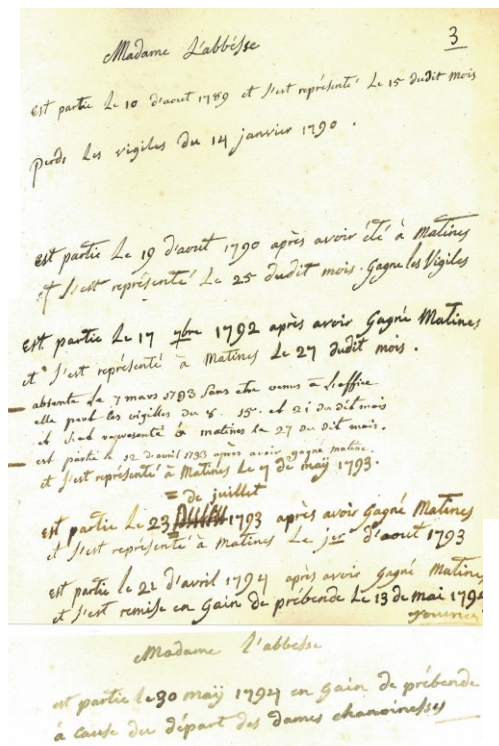 3
Madame L'abbésse
est partie Le 10 d'aout 1789 et s'est représenté Le 15 dudit mois
perds Les vigiles du 14 janvier 1790.
est partie Le 19 d'aout 1790 après avoir été à Matines
et s'est représenté Le 25 dudit mois. Gagne les Vigiles
est partie Le 17 7bre 1792 après avoir Gagné Matines
et s'est représenté à Matines Le 27 dudit mois.
absente Le 7 mars 1793 sans etre venue à L'office
elle perd les vigilles du 8. 15. et 21 du dit mois
et s'est representé à matines le 27 du dit mois.
est partie le 12 d'avril 1793 après avoir gagné matine
et s'est représenté à Matines Le 7 de maÿ 1793.
= de juillet
est partie Le 23 1793 après avoir Gagné Matines
et s'est représenté à Matines Le jer d'aout 1793
est partie le 22 d'avril 1794 après avoir Gagné Matines
et s'est remise en Gain de prébende Le 13 de mai 1794
Madame L'abbésse
est partie le 30 maÿ 1794 en Gain de prébende
à cause du départ des dames chanoinesses